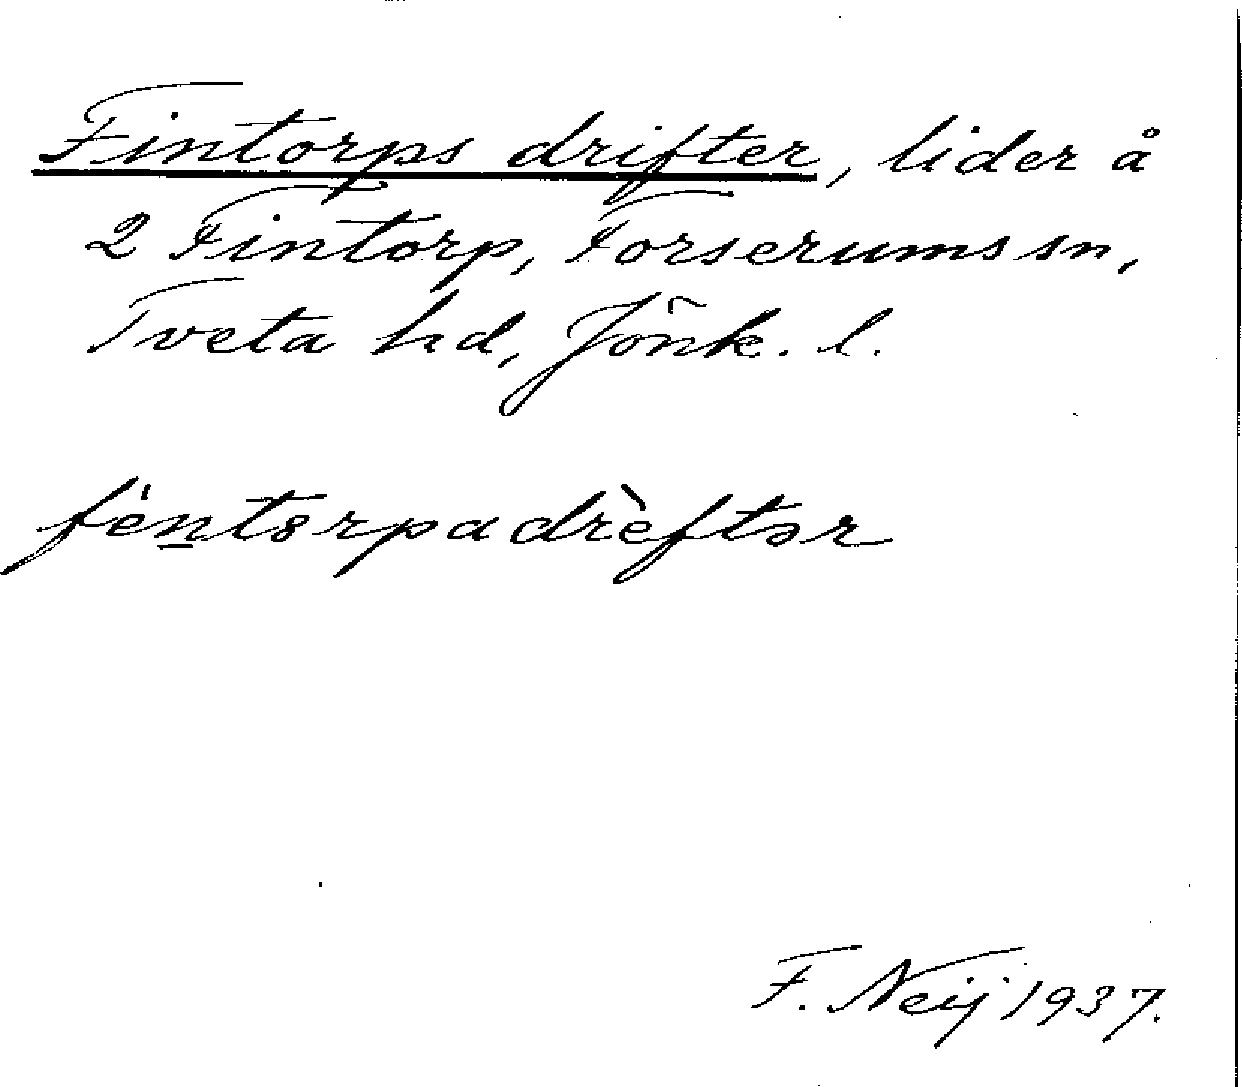 Fintorps drifter, lider å
2 Fintorp, Forserums sn,
Tveta hd, Jönk. l.
fèn̲tɵrpadrèftər
F. Neij 1937.